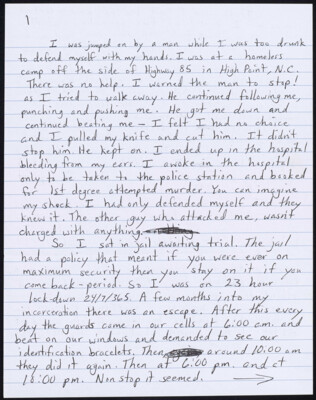 1
I was jumped on by a man while I was too drunk
to defend myself with my hands. I was at a homeless
camp off the side of Highway 85 in High Point, N.C.
There was no help. I warned the man to stop!
as I tried to walk away. He continued following me,
punching and pushing me. He got me down and
continued beating me – I felt I had no choice
and I pulled my knife and cut him. It didn't
stop him. He kept on. I ended up in the hospital
bleeding from my ears. I awoke in the hospital
only to be taken to the police station and booked
for 1st degree attempted murder. You can imagine
my shock. I had only defended myself and they
knew it. The other guy who attacked me, wasn't
charged with anything.
So I sat in jail awaiting trial. The jail
had a policy that meant if you were ever on
maximum security then you stay on it if you
come back - period. So I was on 23 hour
lock-down 24/7/365. A few months into my
incarceration there was an escape. After this every
day the guards came in our cells at 6:00 am. and
beat on our windows and demanded to see our
identification bracelets. Then around 10:00 am
they did it again. Then at 6:00 pm. and at
10:00 pm. Non stop it seemed. →